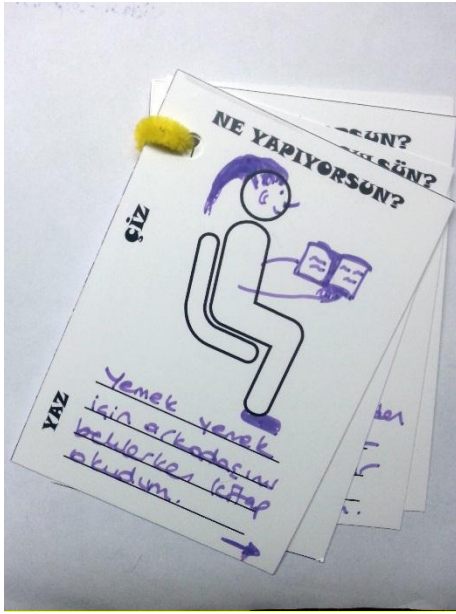 NE YAPIYORSUN?
ÇİZ
YAZ
Yemek yemek
için arkadaşımı
beklerken kitap
okudum.